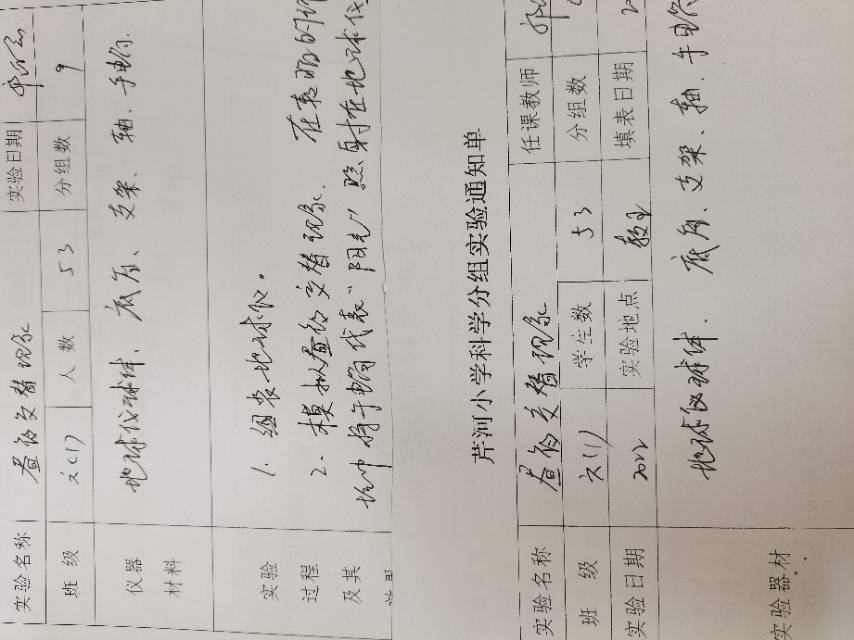 实验名称 昼夜交替现象 实验日期
班 级 六(1) 人 数 53 分组数 9
仪器 材料 地球仪球体、底座、支架、轴、手电筒
实验
过程
及其
1. 组装地球仪。
2. 模拟昼夜交替现象. 在表
中将手电筒代表"阳光"照射在地球仪
芹河小学科学分组实验通知单
实验名称 昼夜交替现象 任课教师
班 级 六(1) 学生数 53 分组数
实验日期 2022 实验地点 教室 填表日期
实验器材 地球仪球体、底座、支架、轴、手电筒